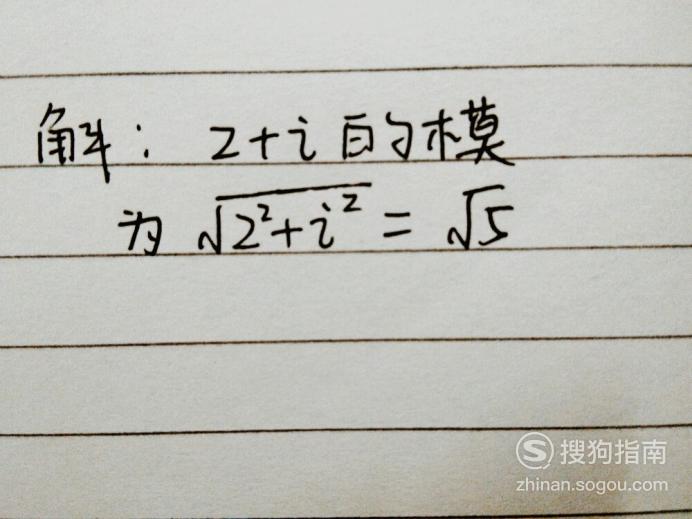 解：2+i的模
为 √2²+i² = √5
S 搜狗指南
zhinan.sogou.com